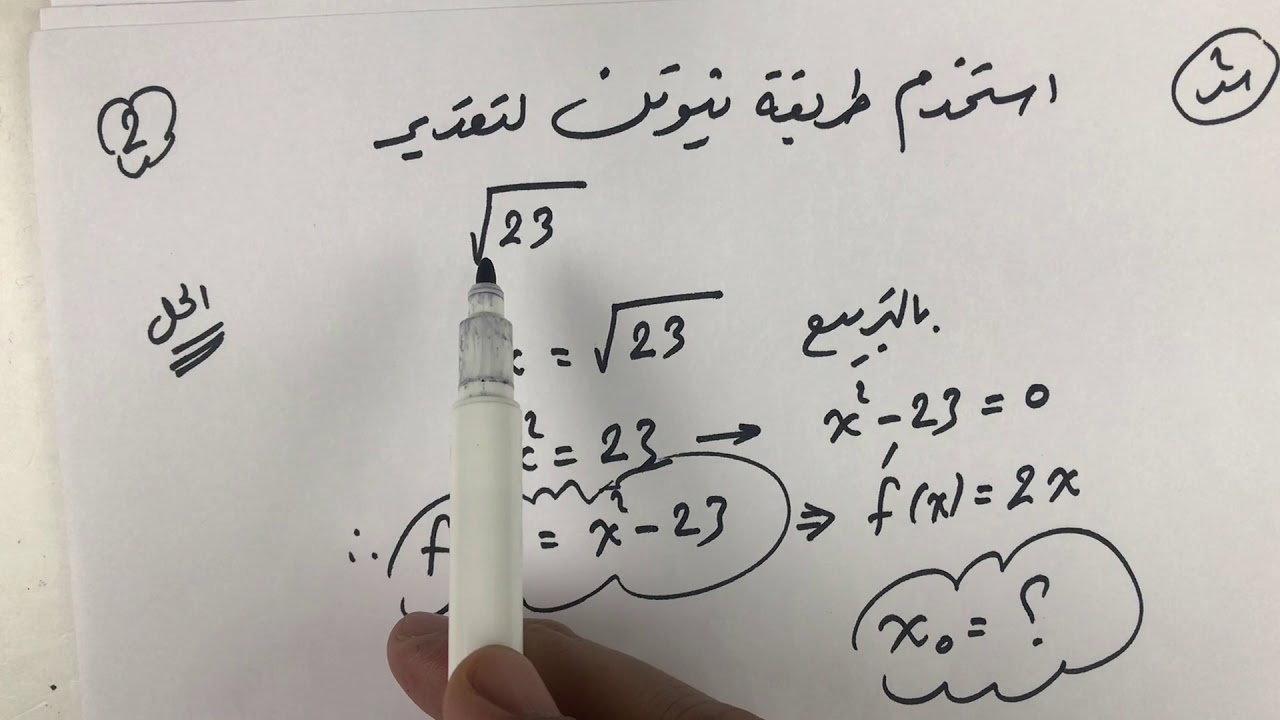 استخدم طريقة نيوتن لتقدير
2
√23
الحل
x = √23 بالتربيع
x² = 23 → x² - 23 = 0
∴ f = x² - 23 ⇒ f'(x) = 2x
x₀ = ?